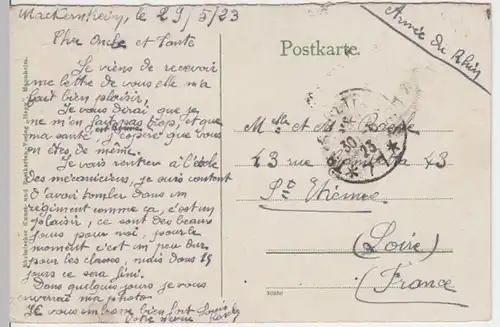 Mackenheim, le 29/5/23
Cher Oncle et Tante
Je viens de recevoir
une lettre de vous elle m'a
fait bien plaisir.
Je vous dirai que je
ne m'en fait pas trop, et que
ma santé est bonne j'espère que vous
en êtes, de même.
Je vais rentrer a l'école
des mecaniciens, je suis content
d'avoir tomber dans un
regiment comme ça, c'est un
plaisir, ce sont des beaux
jours pour moi, pour le
moment c'est un peu dur
pour les classes, mais dans 15
jours ce sera fini.
Dans quelques jours je vous
enverrai ma photo
Je vous embrasse bien fort
Votre neveu
Postkarte.
Armée du Rhin
Melle et
43 rue 43
St Etienne
(Loire)
(France)